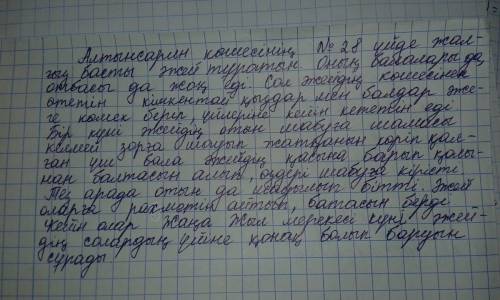 Алтынсарин көшесінің №28 үйде жал-
ғыз басты әжей тұратын. Оның балалары да,
отбасы да жоқ еді. Сол әжейдің көшесінен
өтетін кішкентай қыздар мен балдар әже-
ге көмек беріп, үйлеріне кейін кететін еді.
Бір күні әжейдің отын шабуға шамасы
келмей зорға шауып жатқанын көріп қал-
ған үш бала әжейдің қасына барып қолы-
нан балтасын алып, өздері шабуға кірісті.
Тез арада отын да шабылып бітті. Әжей
оларға рахметін айтып, батасын берді.
Кейін олар Жаңа Жыл мерекесі күні әжей-
дің солардың үйіне қонақ болып баруын
сұрады.